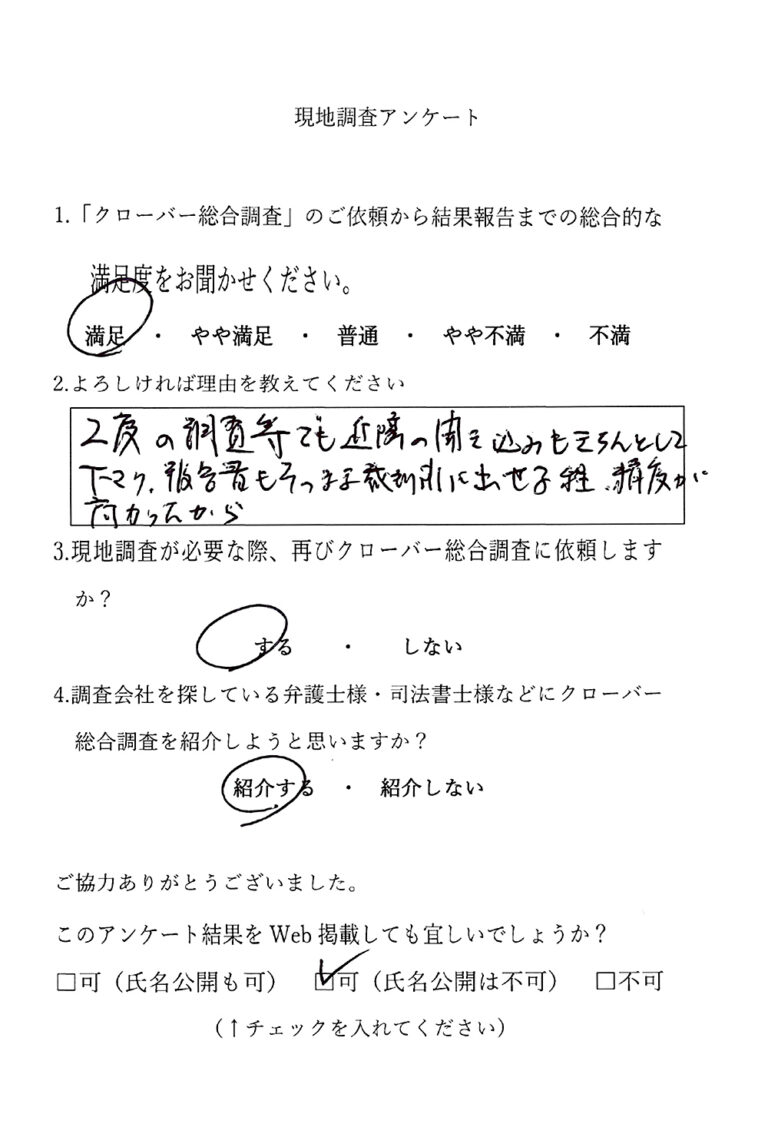 現地調査アンケート
1.「クローバー総合調査」のご依頼から結果報告までの総合的な
満足度をお聞かせください。
満足 ・ やや満足 ・ 普通 ・ やや不満 ・ 不満
2.よろしければ理由を教えてください
2度の調査等でも近隣の聞き込みもきちんとして
下さり、報告書もそのまま裁判所に出せる程、精度が
高かったから
3.現地調査が必要な際、再びクローバー総合調査に依頼します
か？
する ・ しない
4.調査会社を探している弁護士様・司法書士様などにクローバー
総合調査を紹介しようと思いますか？
紹介する ・ 紹介しない
ご協力ありがとうございました。
このアンケート結果を Web 掲載しても宜しいでしょうか？
□可（氏名公開も可） □可（氏名公開は不可） □不可
（↑チェックを入れてください）